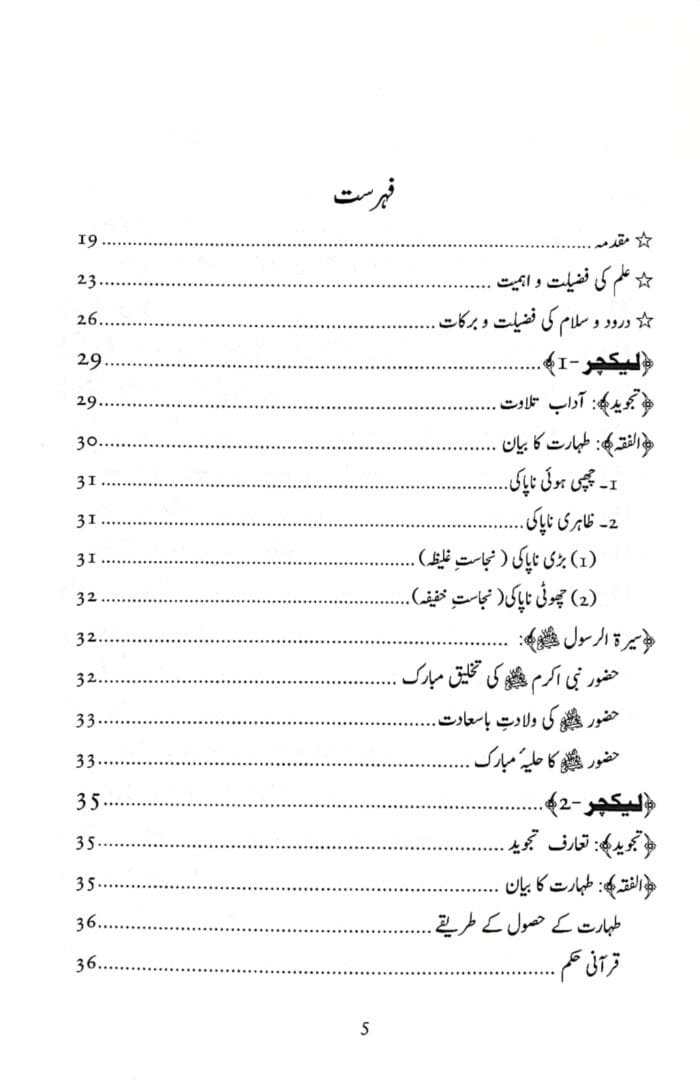 فہرست
☆ مقدمہ ........................................ 19
☆ علم کی فضیلت و اہمیت ........................................ 23
☆ درود و سلام کی فضیلت و برکات ........................................ 26
﴿لیکچر -1﴾ ........................................ 29
﴿تجوید﴾: آداب تلاوت ........................................ 29
﴿الفقہ﴾: طہارت کا بیان ........................................ 30
1۔ چھپی ہوئی ناپاکی ........................................ 31
2۔ ظاہری ناپاکی ........................................ 31
(1) بڑی ناپاکی (نجاستِ غلیظہ) ........................................ 31
(2) چھوٹی ناپاکی (نجاستِ خفیفہ) ........................................ 32
﴿سیرۃ الرسول ﷺ﴾: ........................................ 32
حضور نبی اکرم ﷺ کی تخلیق مبارک ........................................ 32
حضور ﷺ کی ولادتِ باسعادت ........................................ 33
حضور ﷺ کا حلیۂ مبارک ........................................ 33
﴿لیکچر -2﴾ ........................................ 35
﴿تجوید﴾: تعارف تجوید ........................................ 35
﴿الفقہ﴾: طہارت کا بیان ........................................ 35
طہارت کے حصول کے طریقے ........................................ 36
قرآنی حکم ........................................ 36
5